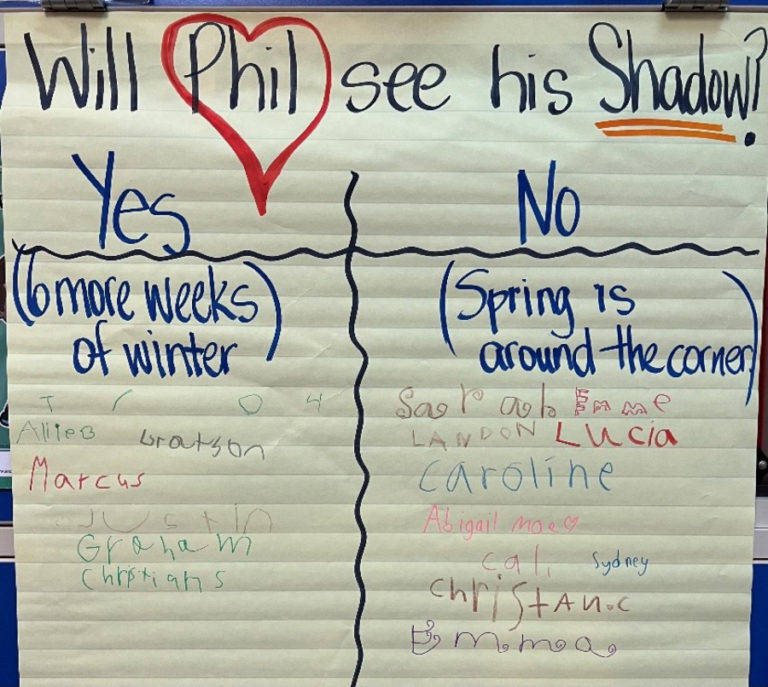 Will Phil see his Shadow?
Yes
(6 more weeks
of winter)
T r o y
Allie B Gratson
Marcus
Justin
Graham
Christian S
No
(Spring is
around the corner)
Sarah Emme
LANDON Lucia
caroline
Abigail mae
cali Sydney
christAn.c
Emma